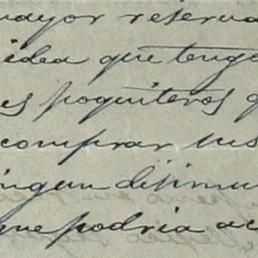 mayor reserva
idea que tengo
es poquiteros q
comprar sus
ningun disimu
que podria ac